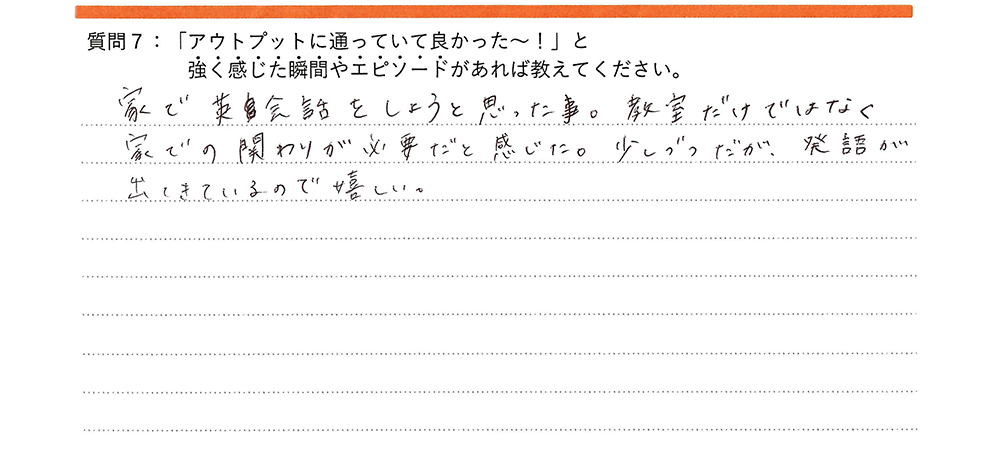 質問７：「アウトプットに通っていて良かった〜！」と
強く感じた瞬間やエピソードがあれば教えてください。
家で英会話をしようと思った事。教室だけではなく
家での関わりが必要だと感じた。少しづつだが、発語が
出てきているので嬉しい。